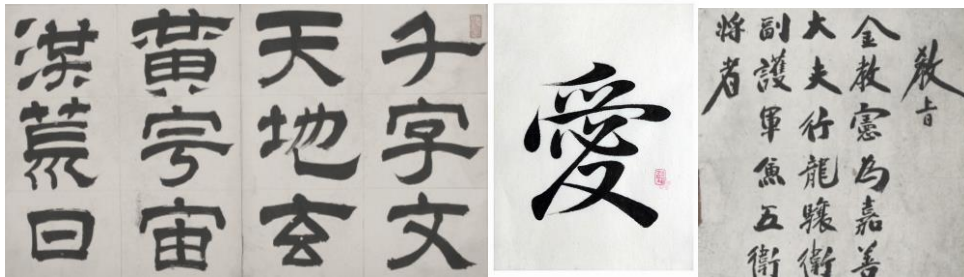 千字文
天地玄
黃宇宙
洪荒日
愛
教旨
金敎憲為嘉善
大夫行龍驤衛
副護軍兼五衛
將者